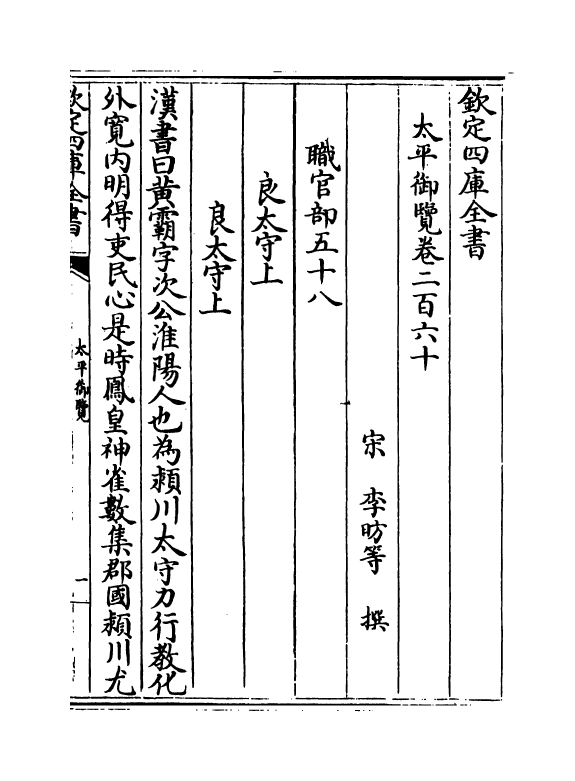 欽定四庫全書
太平御覽卷二百六十
宋　李昉等　撰
職官部五十八
良太守上
良太守上
漢書曰黄霸字次公淮陽人也為潁川太守力行教化
外寛内明得吏民心是時鳳皇神雀數集郡國潁川尤
欽定四庫全書
太平御覽
一